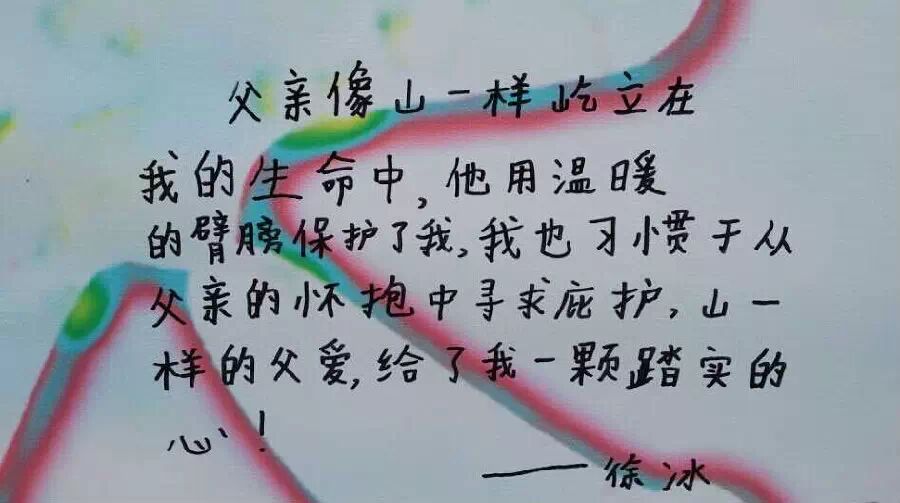 父亲像山一样屹立在
我的生命中,他用温暖
的臂膀保护了我,我也习惯于从
父亲的怀抱中寻求庇护,山一
样的父爱,给了我一颗踏实的
心!
——徐冰